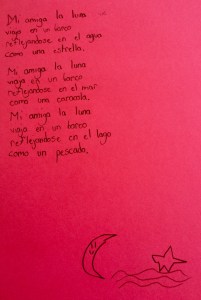 Mi amiga la luna
viaja en un barco
reflejandose en el agua
como una estrella.
Mi amiga la luna
viaja en un barco
reflejandose en el mar
como una caracola.
Mi amiga la luna
viaja en un barco
reflejandose en el lago
como un pescado.